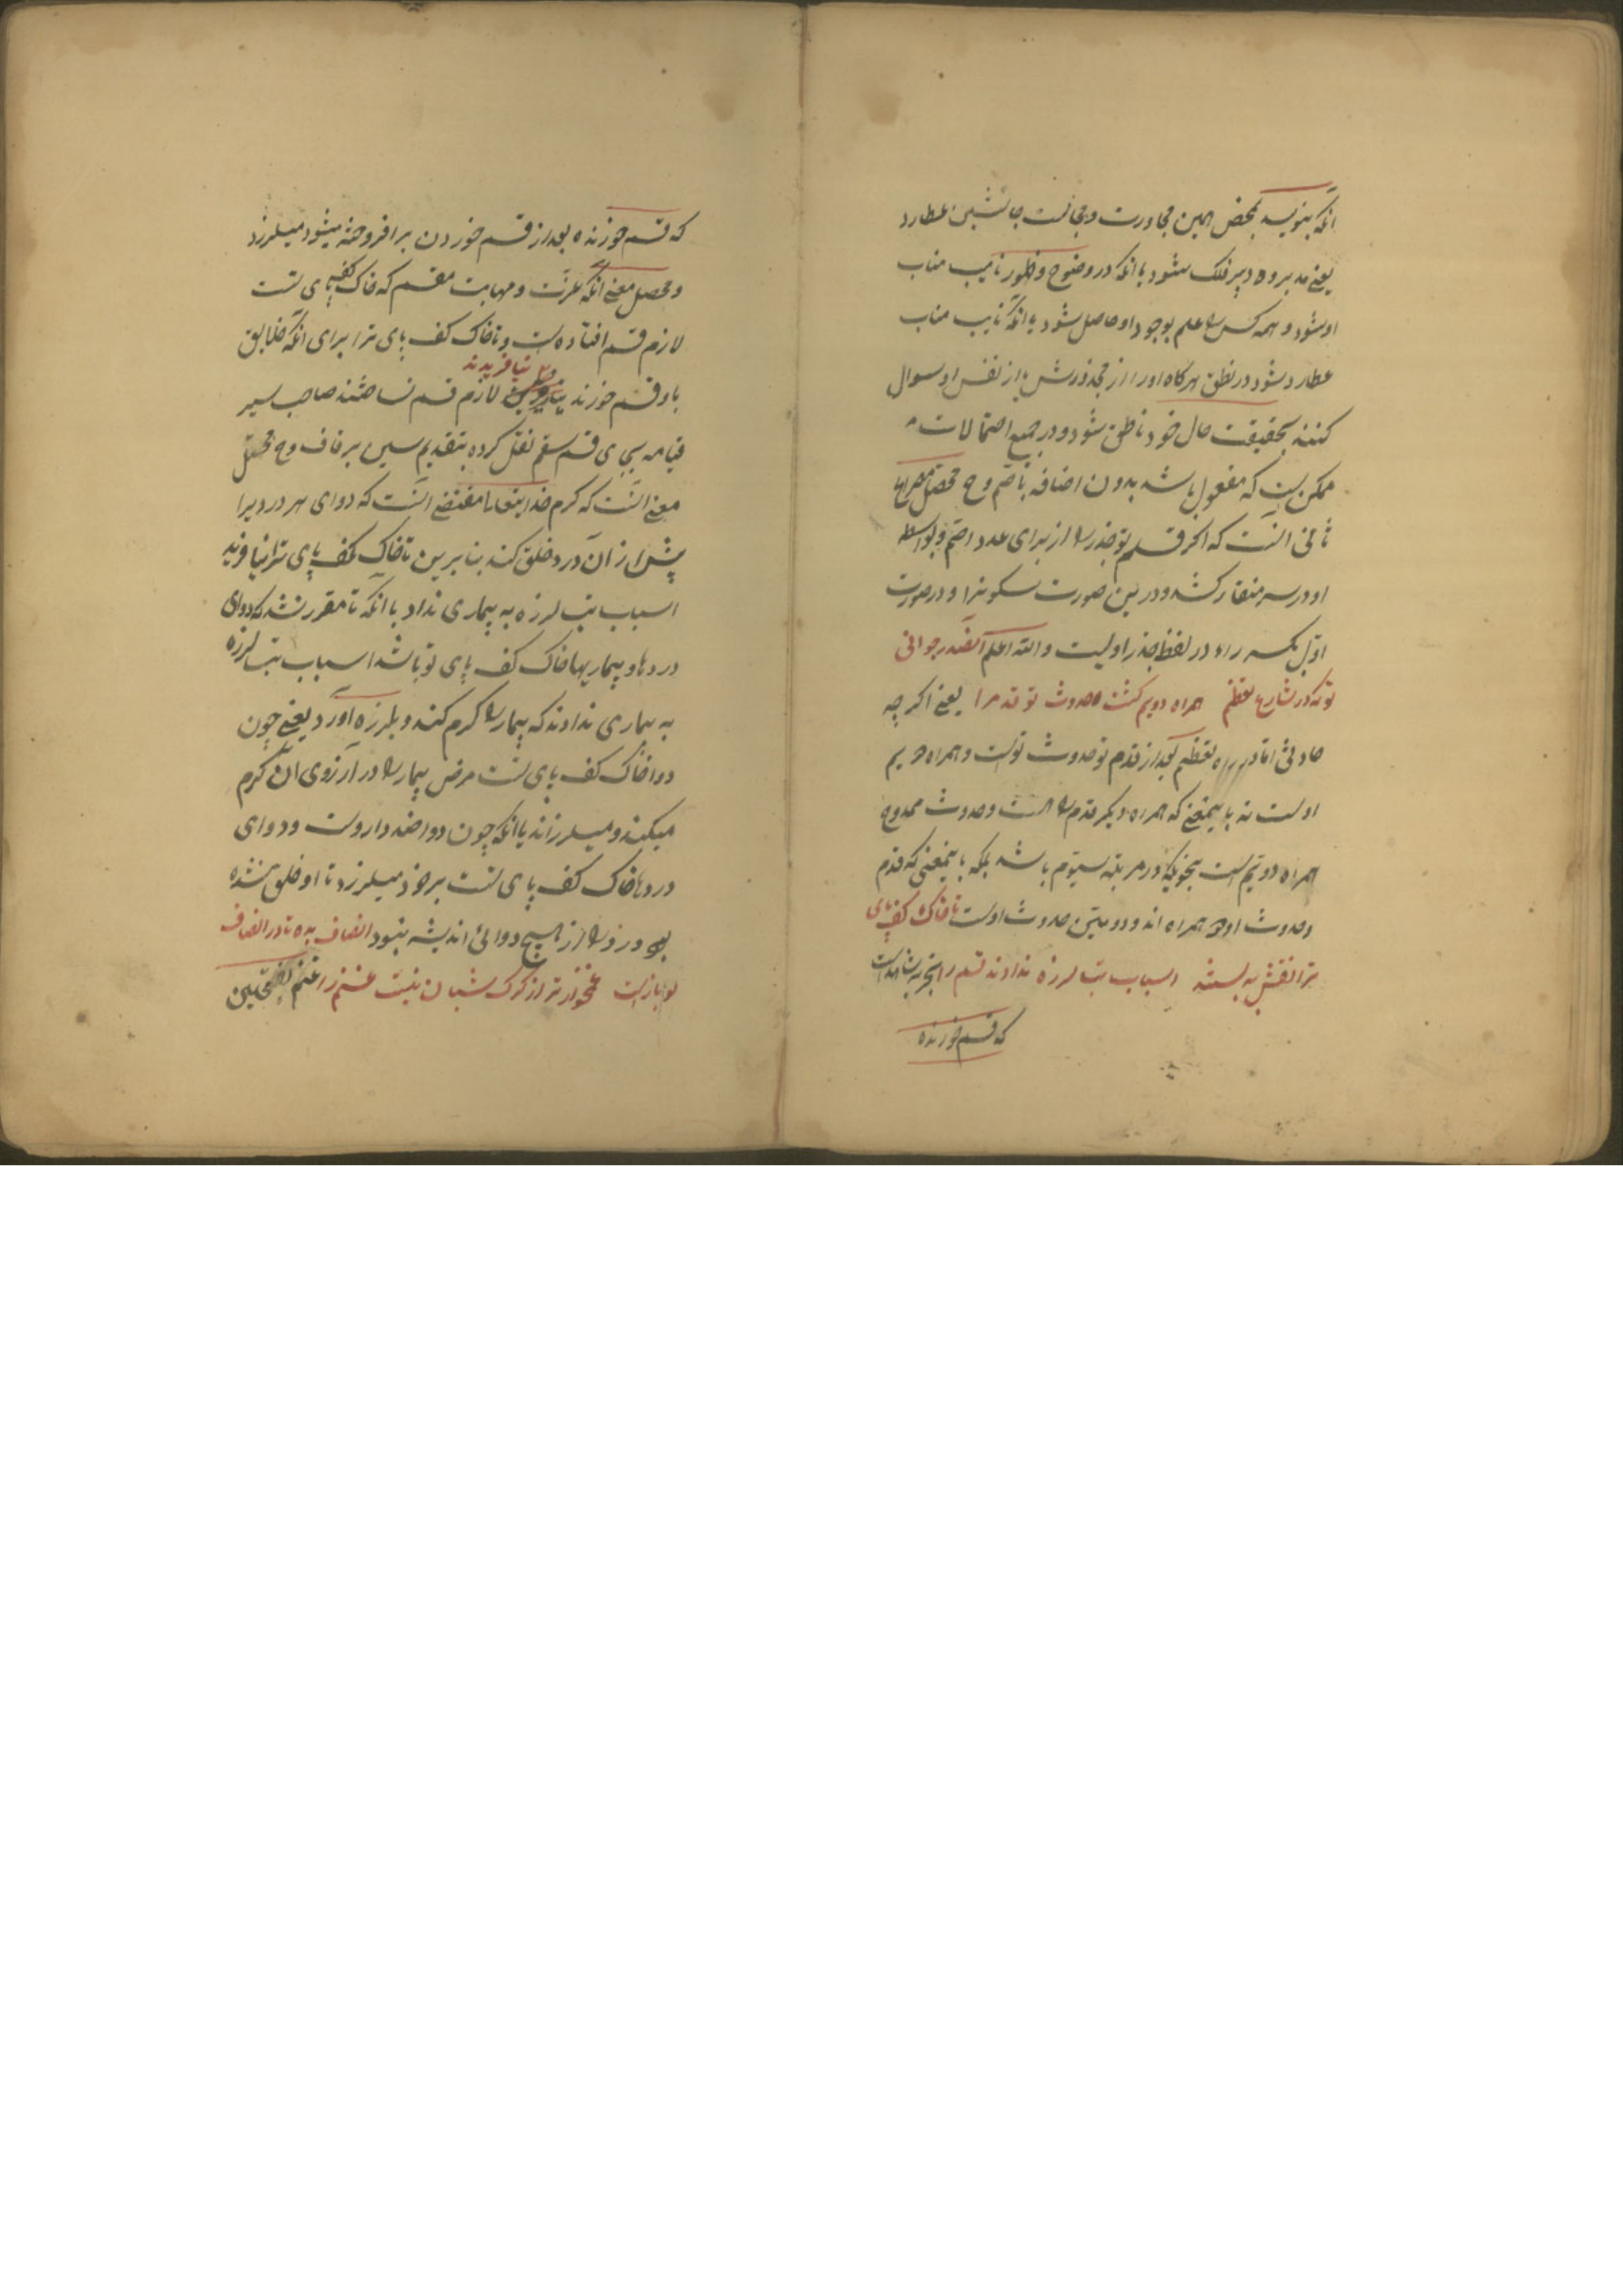 آنکه بنویسد بمحض همین مجاورت و مجانست جانشین عطارد
یعنی مدبر و دبیر فلک شود یا انکه در وضوح و ظهور نایب مناب
او شود و همه کس را علم بوجود او حاصل شود یا انکه نایب مناب
عطارد شود در نطق هرگاه او را از مجذورش یا از نفس او سوال
کنند بحقیقت حال خود ناطق شود و در جمیع احتمالات
ممکن است که مفعول باشد بدون اضافه باصم و ح محصل مصراع
ثانی انست که اگر قلم تو جذر را از برای عدد اصم و بواسطه
او در سر منقار کشد و درین صورت سکون را و در صورت
اول بکسر راء در لفظ جذر اولیست و الله اعلم آنقدر جوانی
تو که در شارع تعظیم همراه دویم گشت حدوث تو قدم را یعنی اگر چه
حادثی اما در راه تعظیم بعد از قدم تو حدوث تست و همراه دویم
اوست نه باینمعنی که همراه دیگر قدم را هست و حدوث ممدوح
همراه دویم است بنحویکه در مرتبه سیوم باشد بلکه باینمعنی که قدم
و حدوث او همراه اند و دومین حدوث اوست تا خاک کف پای
ترا نقش نه بستند اسباب تب لرزه ندادند قسم را بتجربه شاهد است
که قسم خورنده
که قسم خورنده بعد از قسم خوردن برافروخته میشود میلرزد
و محصل معنی انکه عزت و مهابت مقسم که خاک کف پای تست
لازم قسم افتاده است و تا خاک کف پای ترا برای انکه خلایق
باو قسم خورند نیافریدند لازم قسم نساختند صاحب سیر
بجای قسم سقم نقل کرده بتقدیم سین بر قاف و ح محصل
معنی انست که کرم خدایتعالی مقتضی انست که دوای هر دردیرا
پیش از آن درد خلق کند بنابرین تا خاک کف پای ترا نیافرید
اسباب تب لرزه به بیماری نداد یا انکه تا مقرر نشد که دوای
دردها و بیماریها خاک کف پای تو باشد اسباب تب لرزه
به بیماری ندادند که بیمار را گرم کند و بلرزه آورد یعنی چون
دوا خاک کف پای تست مرض بیمار را در آرزوی ان گرم
میکند و میلرزاند یا انکه چون دوا ضد داروست و دوای
دردها خاک کف پای تست بر خود میلرزد تا او خلق نشده
بود درد را از هیچ دوائی اندیشه نبود انصاف بده تا در انصاف
تو باز است غمخوارتر از گرگ شبان نیست غنم را غنم بفتحتین